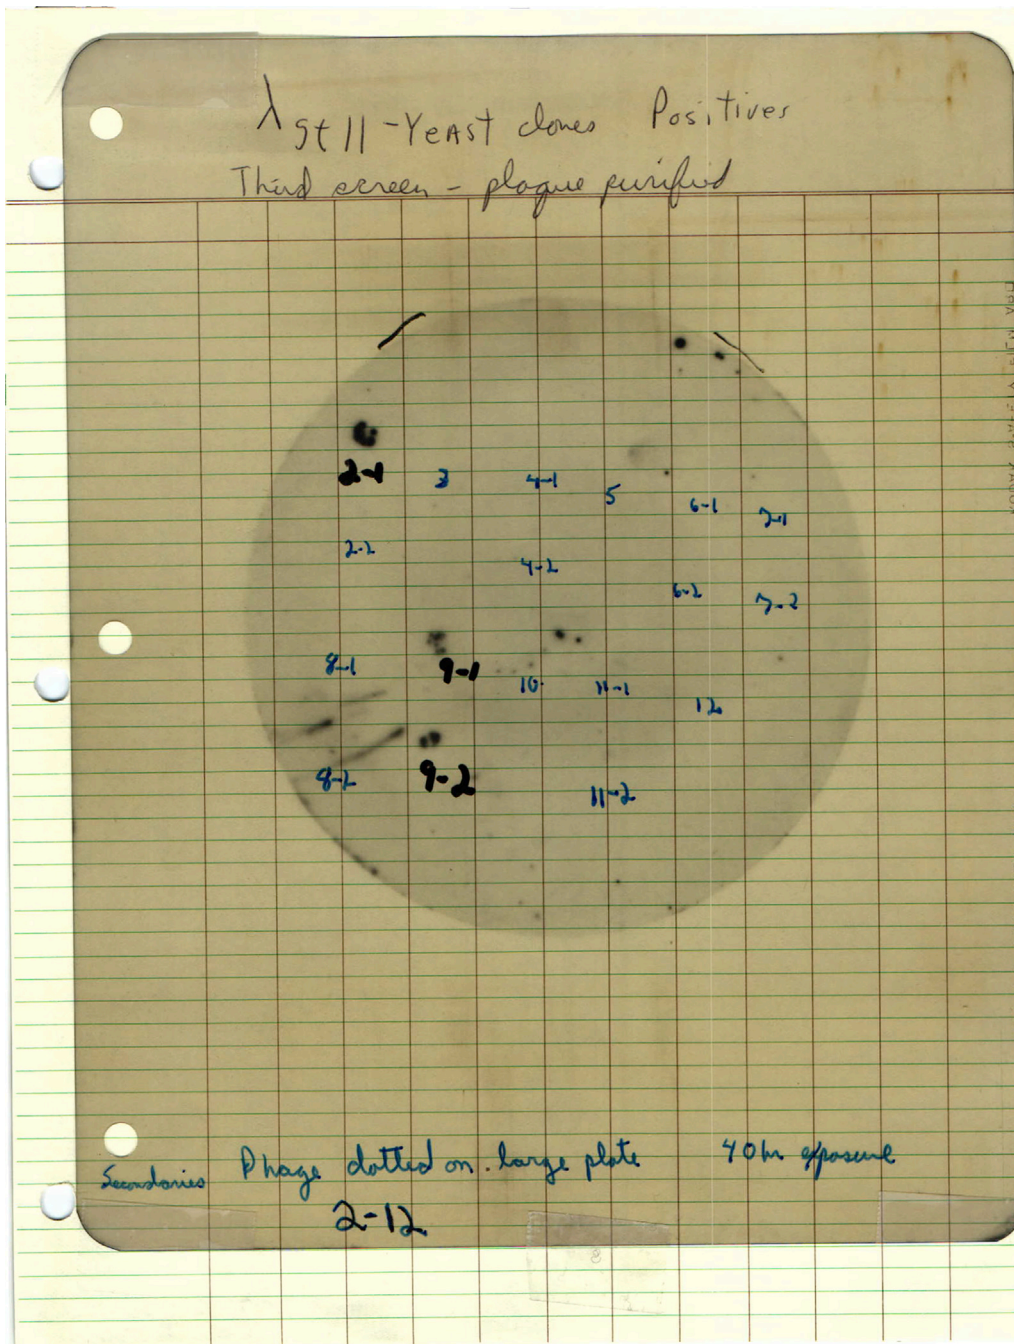 λgt11-Yeast clones Positives
Third screen - plaque purified
2-1 3 4-1 5 6-1 7-1
2-2 4-2 6-2 7-2
8-1 9-1 10 11-1 12
8-2 9-2 11-2
Secondaries Phage dotted on large plate 40 hr exposure
2-12